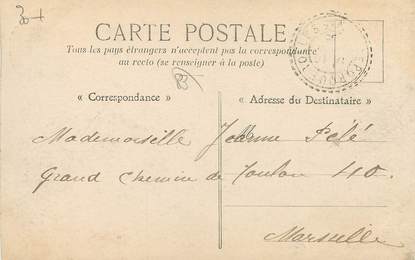 30+
CARTE POSTALE
Tous les pays étrangers n'acceptent pas la correspondance
au recto (se renseigner à la poste)
« Correspondance »
« Adresse du Destinataire »
Mademoiselle Jeanne Pélé
Grand Chemin de Toulon 410.
Marseille